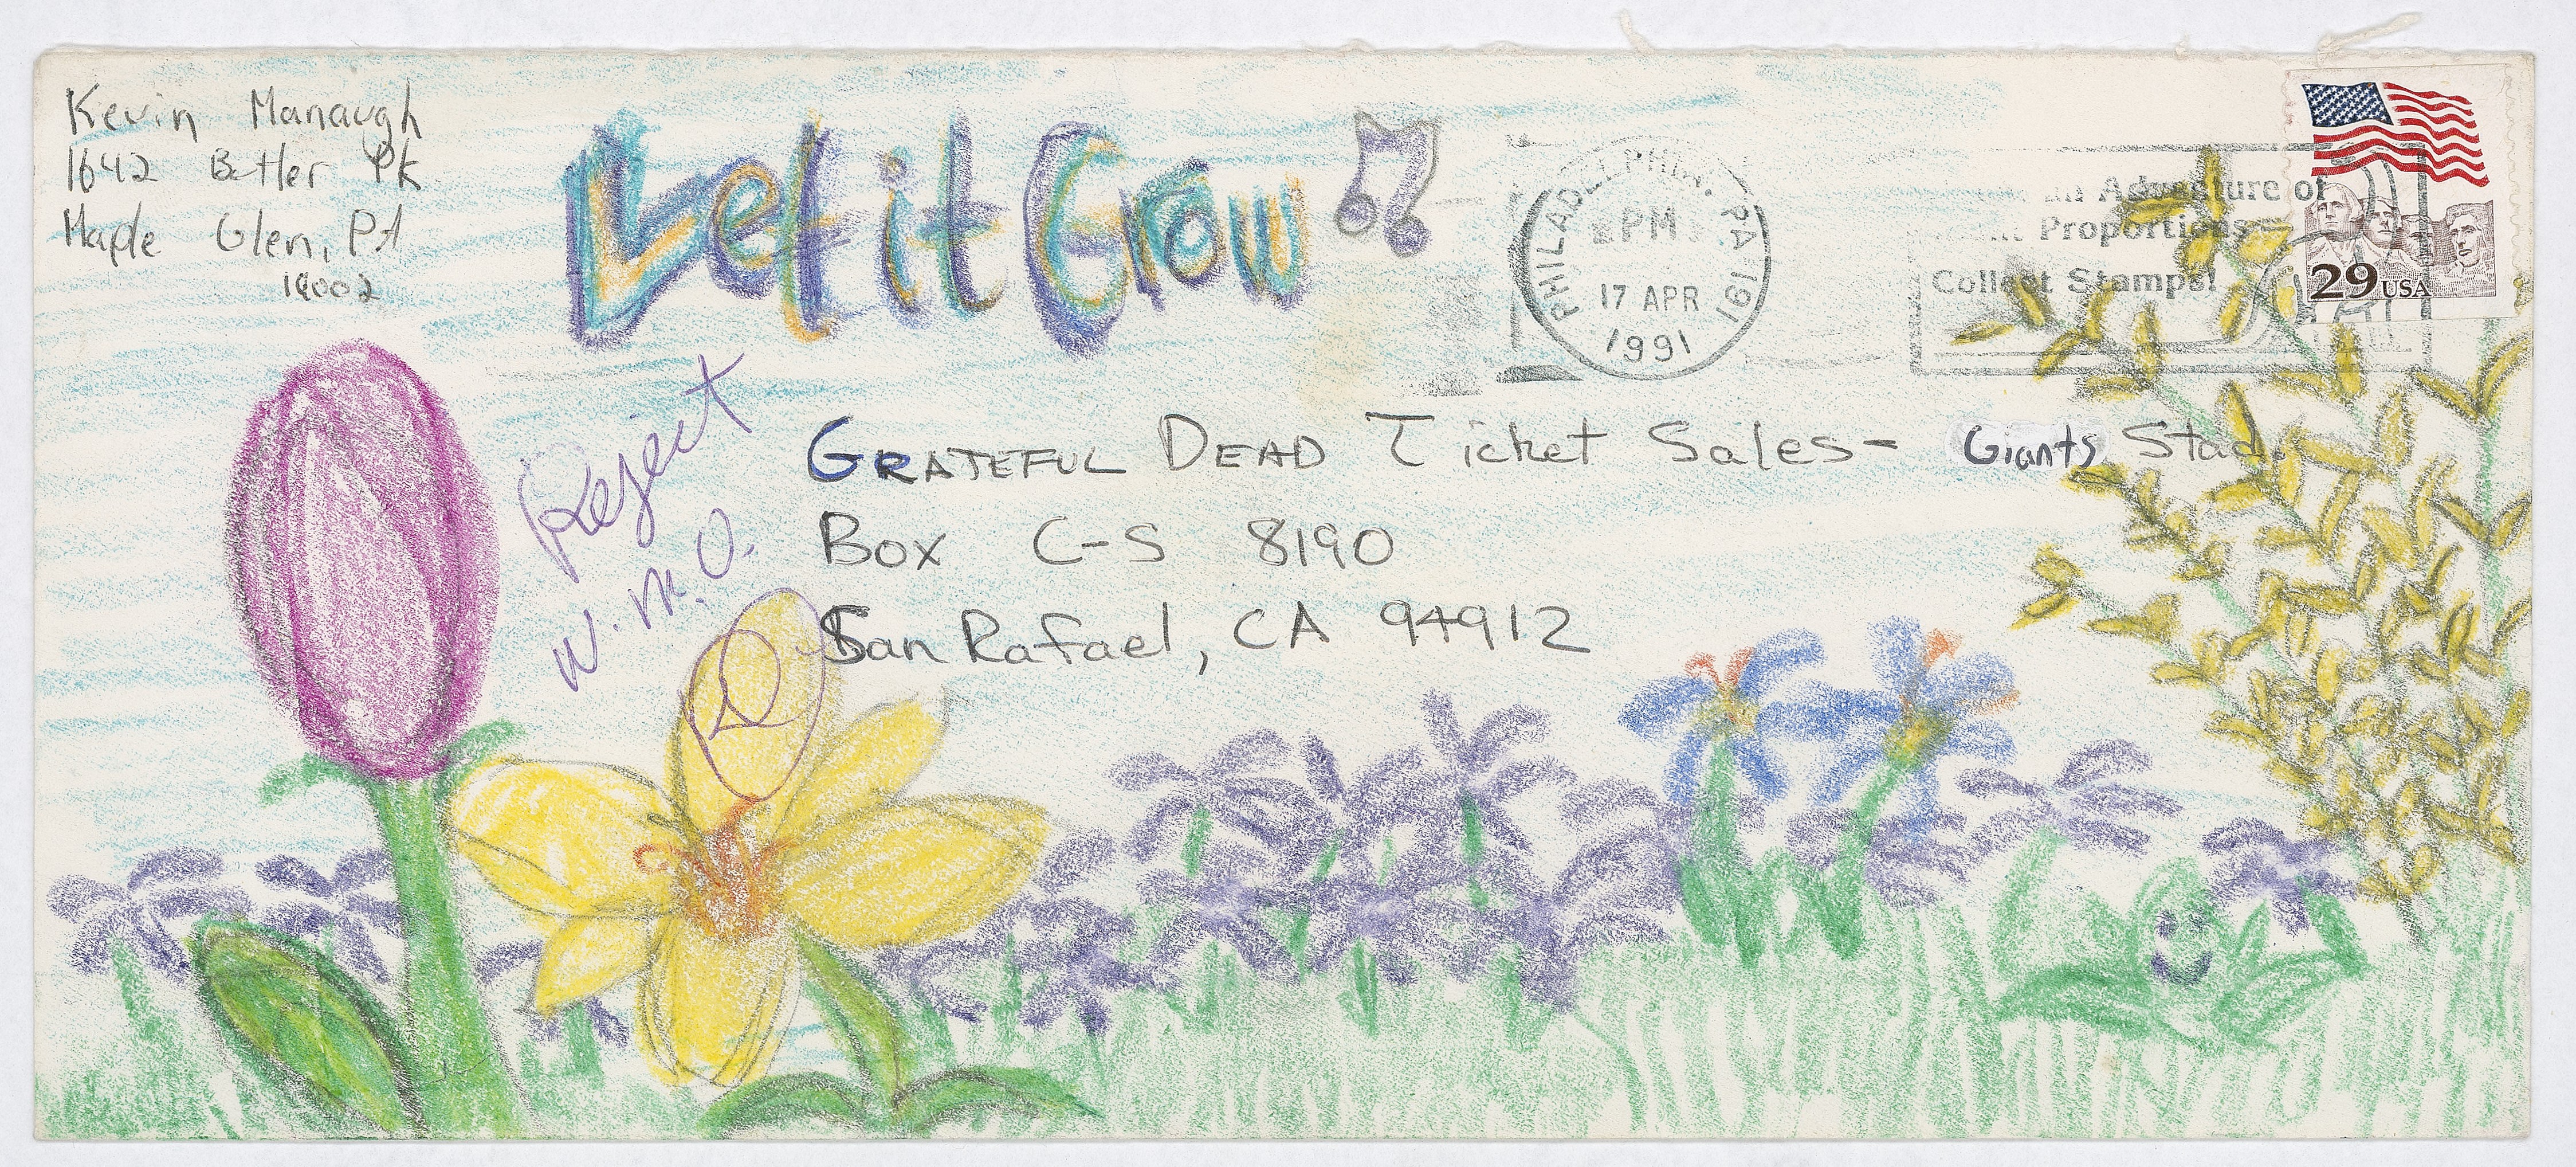 Kevin Manaugh
1642 Butler Pk
Maple Glen, PA
19002
Let it Grow
PHILADELPHIA, PA 191
PM
17 APR
1991
An Adventure of
Proportions
Collect Stamps!
29 USA
Reject
W.M.O.
GRATEFUL DEAD Ticket Sales- Giants Stad.
Box C-S 8190
San Rafael, CA 94912